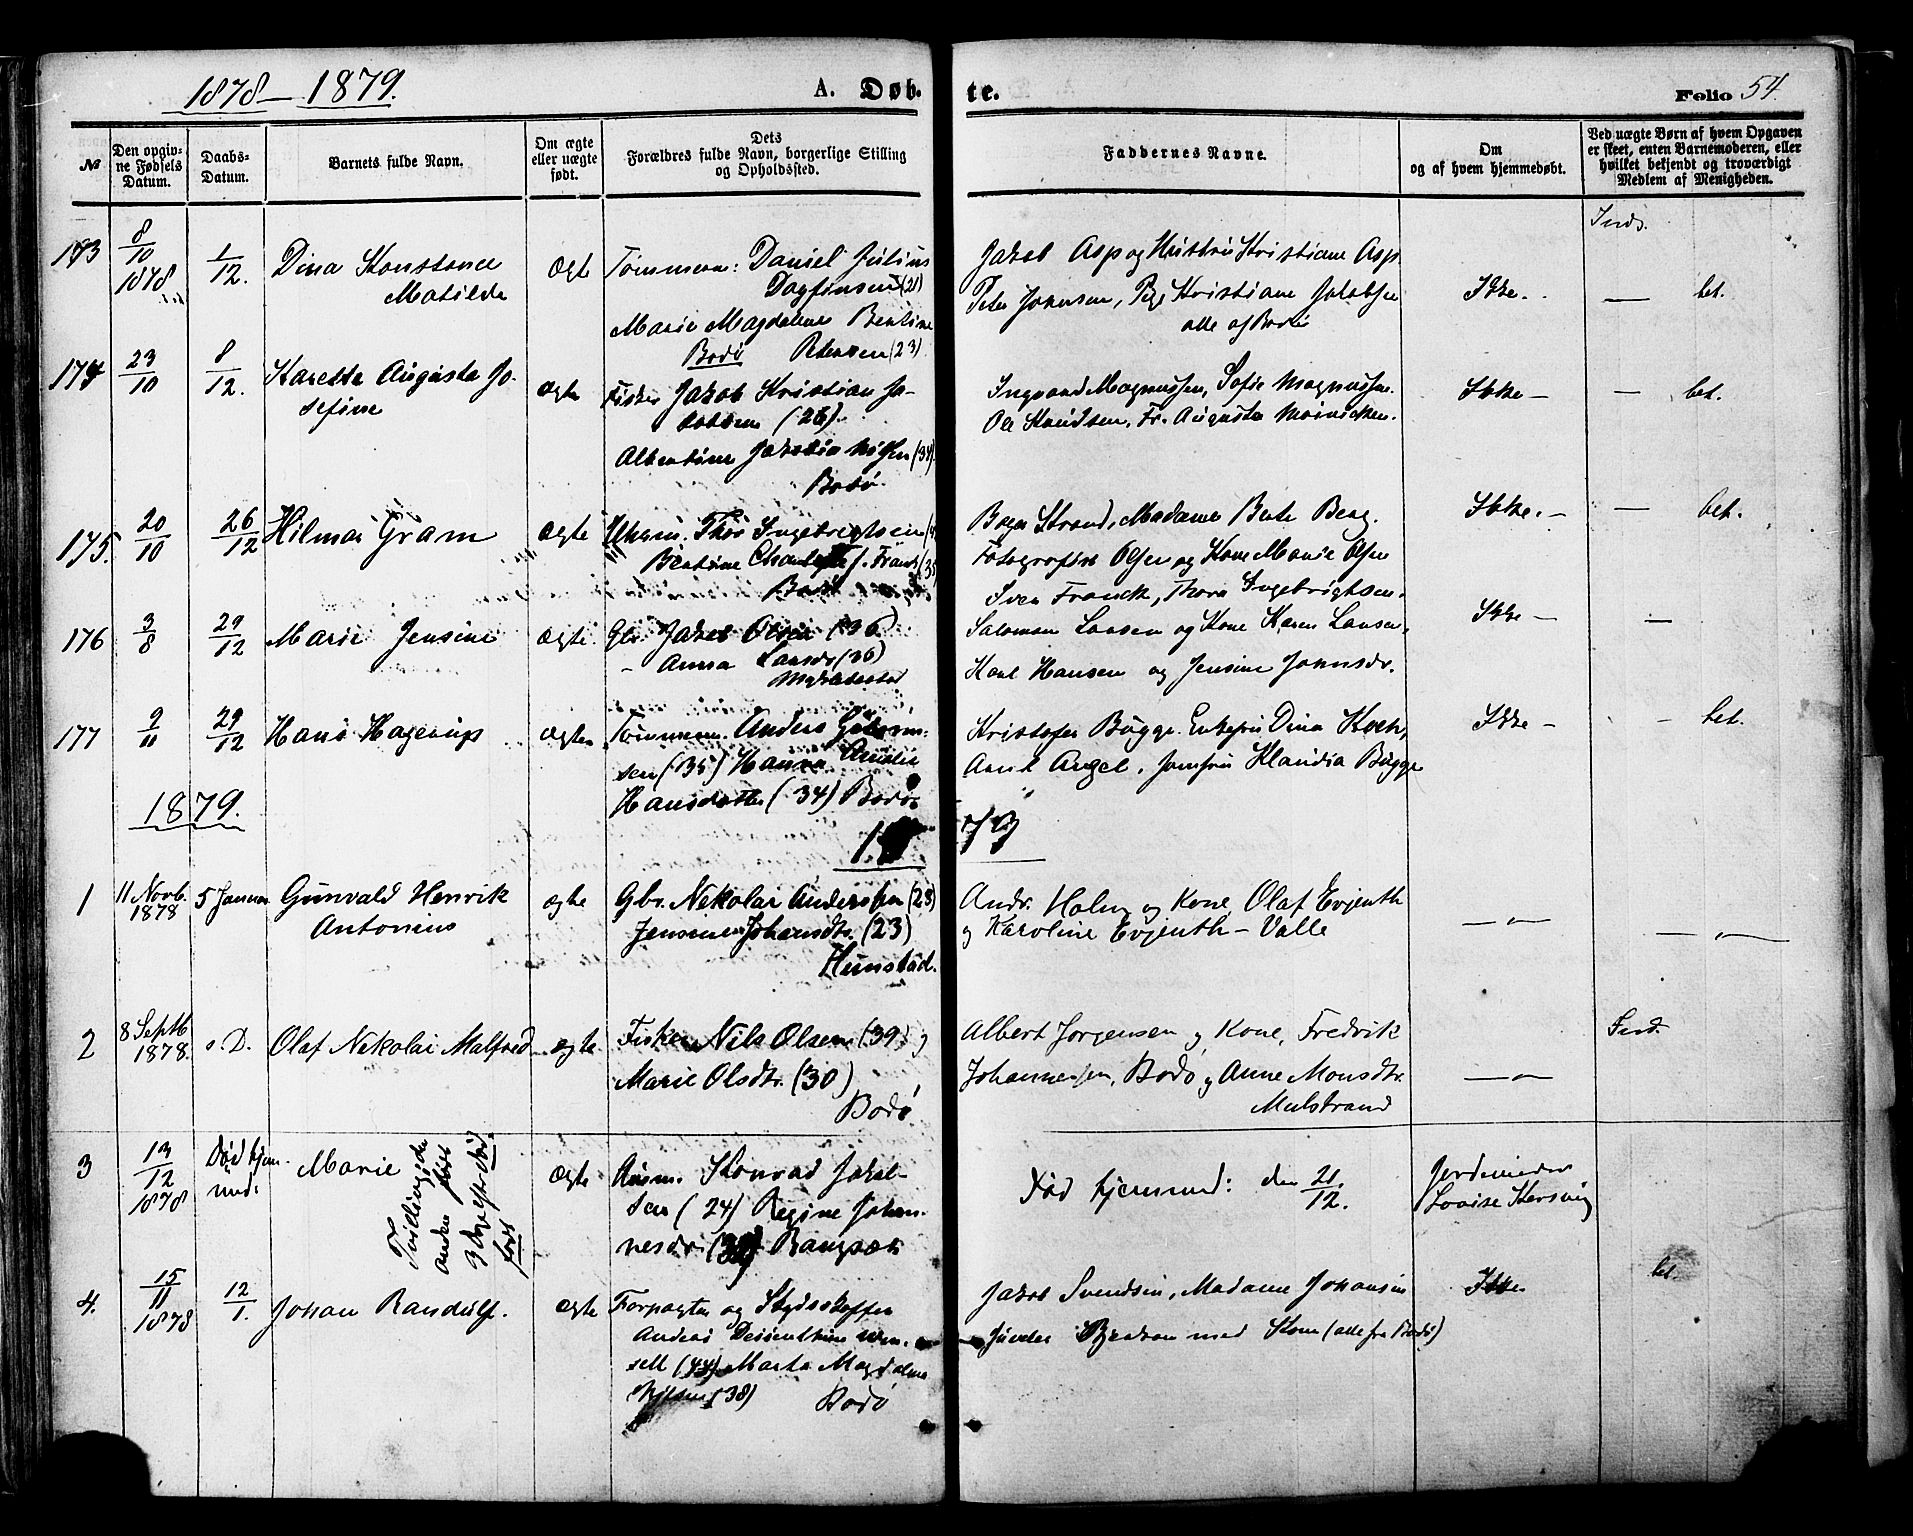 1878 – 1879.
A. Døb-
te.
Folio 54.
№
Den opgiv-
ne Fødsels
Datum.
Daabs-
Datum.
Barnets fulde Navn.
Om ægte
eller uægte
født.
Dets
Forældres fulde Navn, borgerlige Stilling
og Opholdssted.
Faddernes Navne.
Om
og af hvem hjemmedøbt.
Ved uægte Børn af hvem Opgaven
er skeet, enten Barnemoderen, eller
hvilket bekjendt og troværdigt
Medlem af Menigheden.
173
8/10
1878
1/12.
Dina Konstance
Matilde
Ægte
Tømmerm: Daniel Julius
Dagfinsen (21)
Marie Magdalene Bentine
Bodø Petersen (23)
Jakob Asp og Hustru Kristiane Asp
Peter Johnsen, Pige Kristiane Jakobsen
alle af Bodø
Ikke.
Inds.
— bet.
174
23/10
8/12.
Karette Augusta Jo-
sefine
ægte
Fisker Jakob Kristian Ja-
kobsen (26).
Albertine Jakobia Nilsen (34).
Bodø.
Ingvard Magnussen, Sofie Magnussen.
Ole Knudsen, Fr. Augusta Meinicken.
Ikke –
— bet.
175.
20/10
26/12
Hilmar Gram
ægte
Uhrm. Thor Ingebrigtsen
Bentine Charlotte f. Franck (35)
Bodø
Bager Strand, Madame Berte Berg.
Fotograf Olsen og Kone Marie Olsen
Sven Franck, Thora Ingebrigtsen.
Ikke. –
— bet.
176
3/8
29/12
Marie Jensine
ægte.
Gbr. Jakob Olsen (36)
– Anna Larsdr (36)
Salomon Larsen og Kone Karen Larsen,
Karl Hansen og Jensine Johnsdr.
Ikke –
—
177
9/11
29/12
Hans Hagerup
ægte
Tømmerm. Anders Guldbrin-
sen (35) Hanna Amalie
Hansdatter (34) Bodø.
Kristofer Bugge. Enkefru Dina Koch,
Arnt Angel, Jomfru Klaudia Bugge
Ikke –
– bet.
1879.
1879
1
11 Novb.
1878
5 Januar
Gunvald Henrik
Antonius
ægte
Gbr. Nekolai Anderssen (28)
Jensine Johansdtr. (23)
Hunstad.
Andr. Holm og Kone Olaf Evjenth
og Karoline Evjenth – Valle
— " —
— " —
2
8 Septb
1878.
s. D.
Olaf Nekolai Malfred
ægte
Fisker Nils Olsen (39) og
Marie Olsdtr. (30)
Bodø
Albert Jørgensen og Kone, Fredrik
Johannessen, Bodø og Anne Monsdtr.
Mulstrand
— " —
Ind.
3
13/12
1878
Død hjem-
med.
Marie
Tvilling; den
anden født
3 Dage eft. død-
født
Ægte
Husm. Konrad Jakob-
sen (24) Regine Johan-
nesdr (32) Rangsæt
Død hjemmed: den 21/12.
Jordemoder
Lovise Kersvig
4.
15/11
1878
12/1.
Johan Randulf.
ægte
Forpagter og Skydsskaffer
Anders
sell (44) Marta Magdalena
Nilsen (38) Bodø
Jakob Svendsen, Madame Johansen
med Kone (alle fra Bodø)
Ikke
bet.